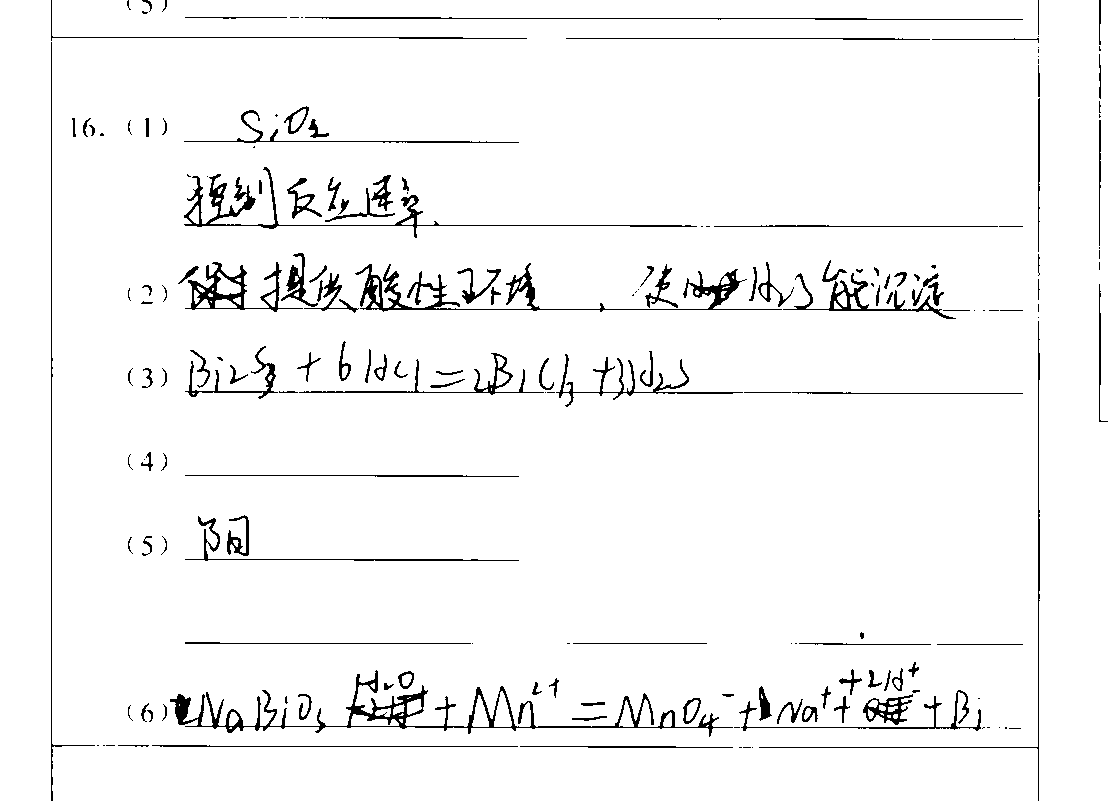 (5)
16. (1) SiO2
控制反应速率.
(2) 提供酸性环境，使 H2S能沉淀
(3) Bi2S3 + 6HCl = 2BiCl3 + 3H2S
(4)
(5) 阳
(6) NaBiO3 H2O + Mn2+ = MnO4- + Na+ + 2H+ + Bi